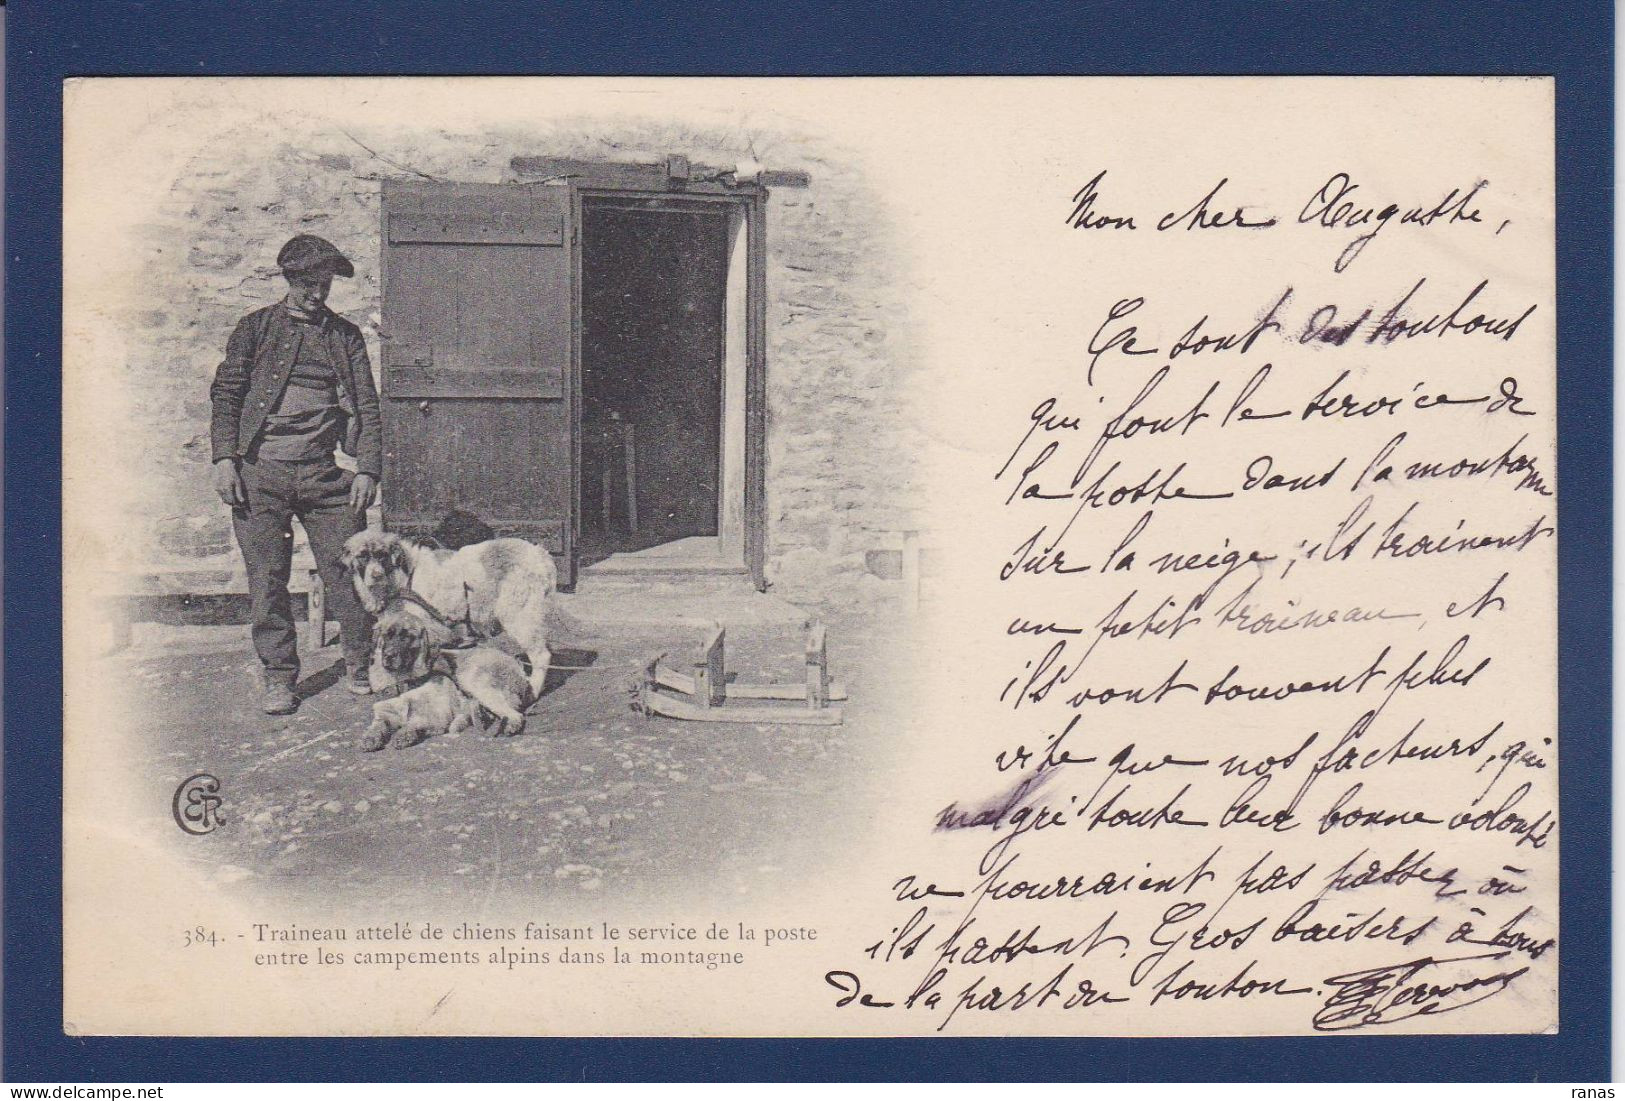 Mon cher Auguste,
Ce sont des toutous
qui font le service de
la poste dans la montagne
sur la neige ; ils trainent
un petit traîneau, et
ils vont souvent plus
vite que nos facteurs, qui
malgré toute leur bonne volonté
ne pourraient pas passer où
ils passent. Gros baisers à tous
de la part du tonton.
CER
384. - Traineau attelé de chiens faisant le service de la poste
entre les campements alpins dans la montagne
ranas